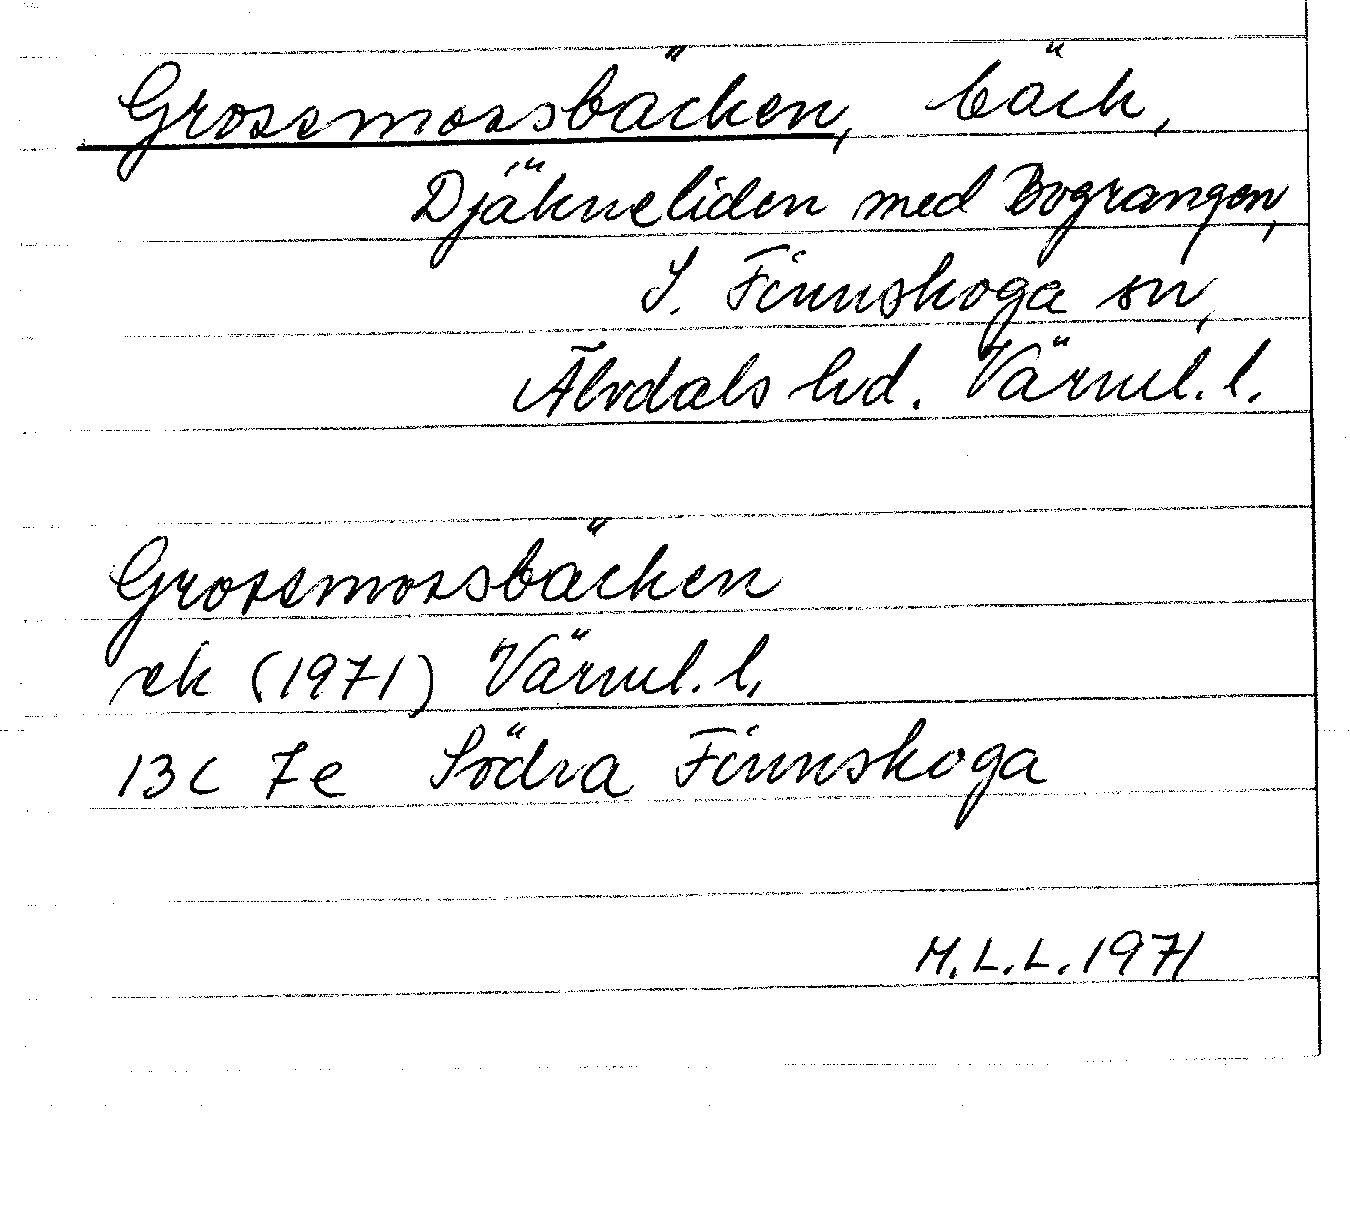 Grossmossbäcken, bäck,
Djäkneliden med Bograngen,
S. Finnskoga sn,
Älvdals hd. Värml. l.
Grossmossbäcken
ek (1971) Värml. l.
13c 7e Södra Finnskoga
M.L.L. 1971